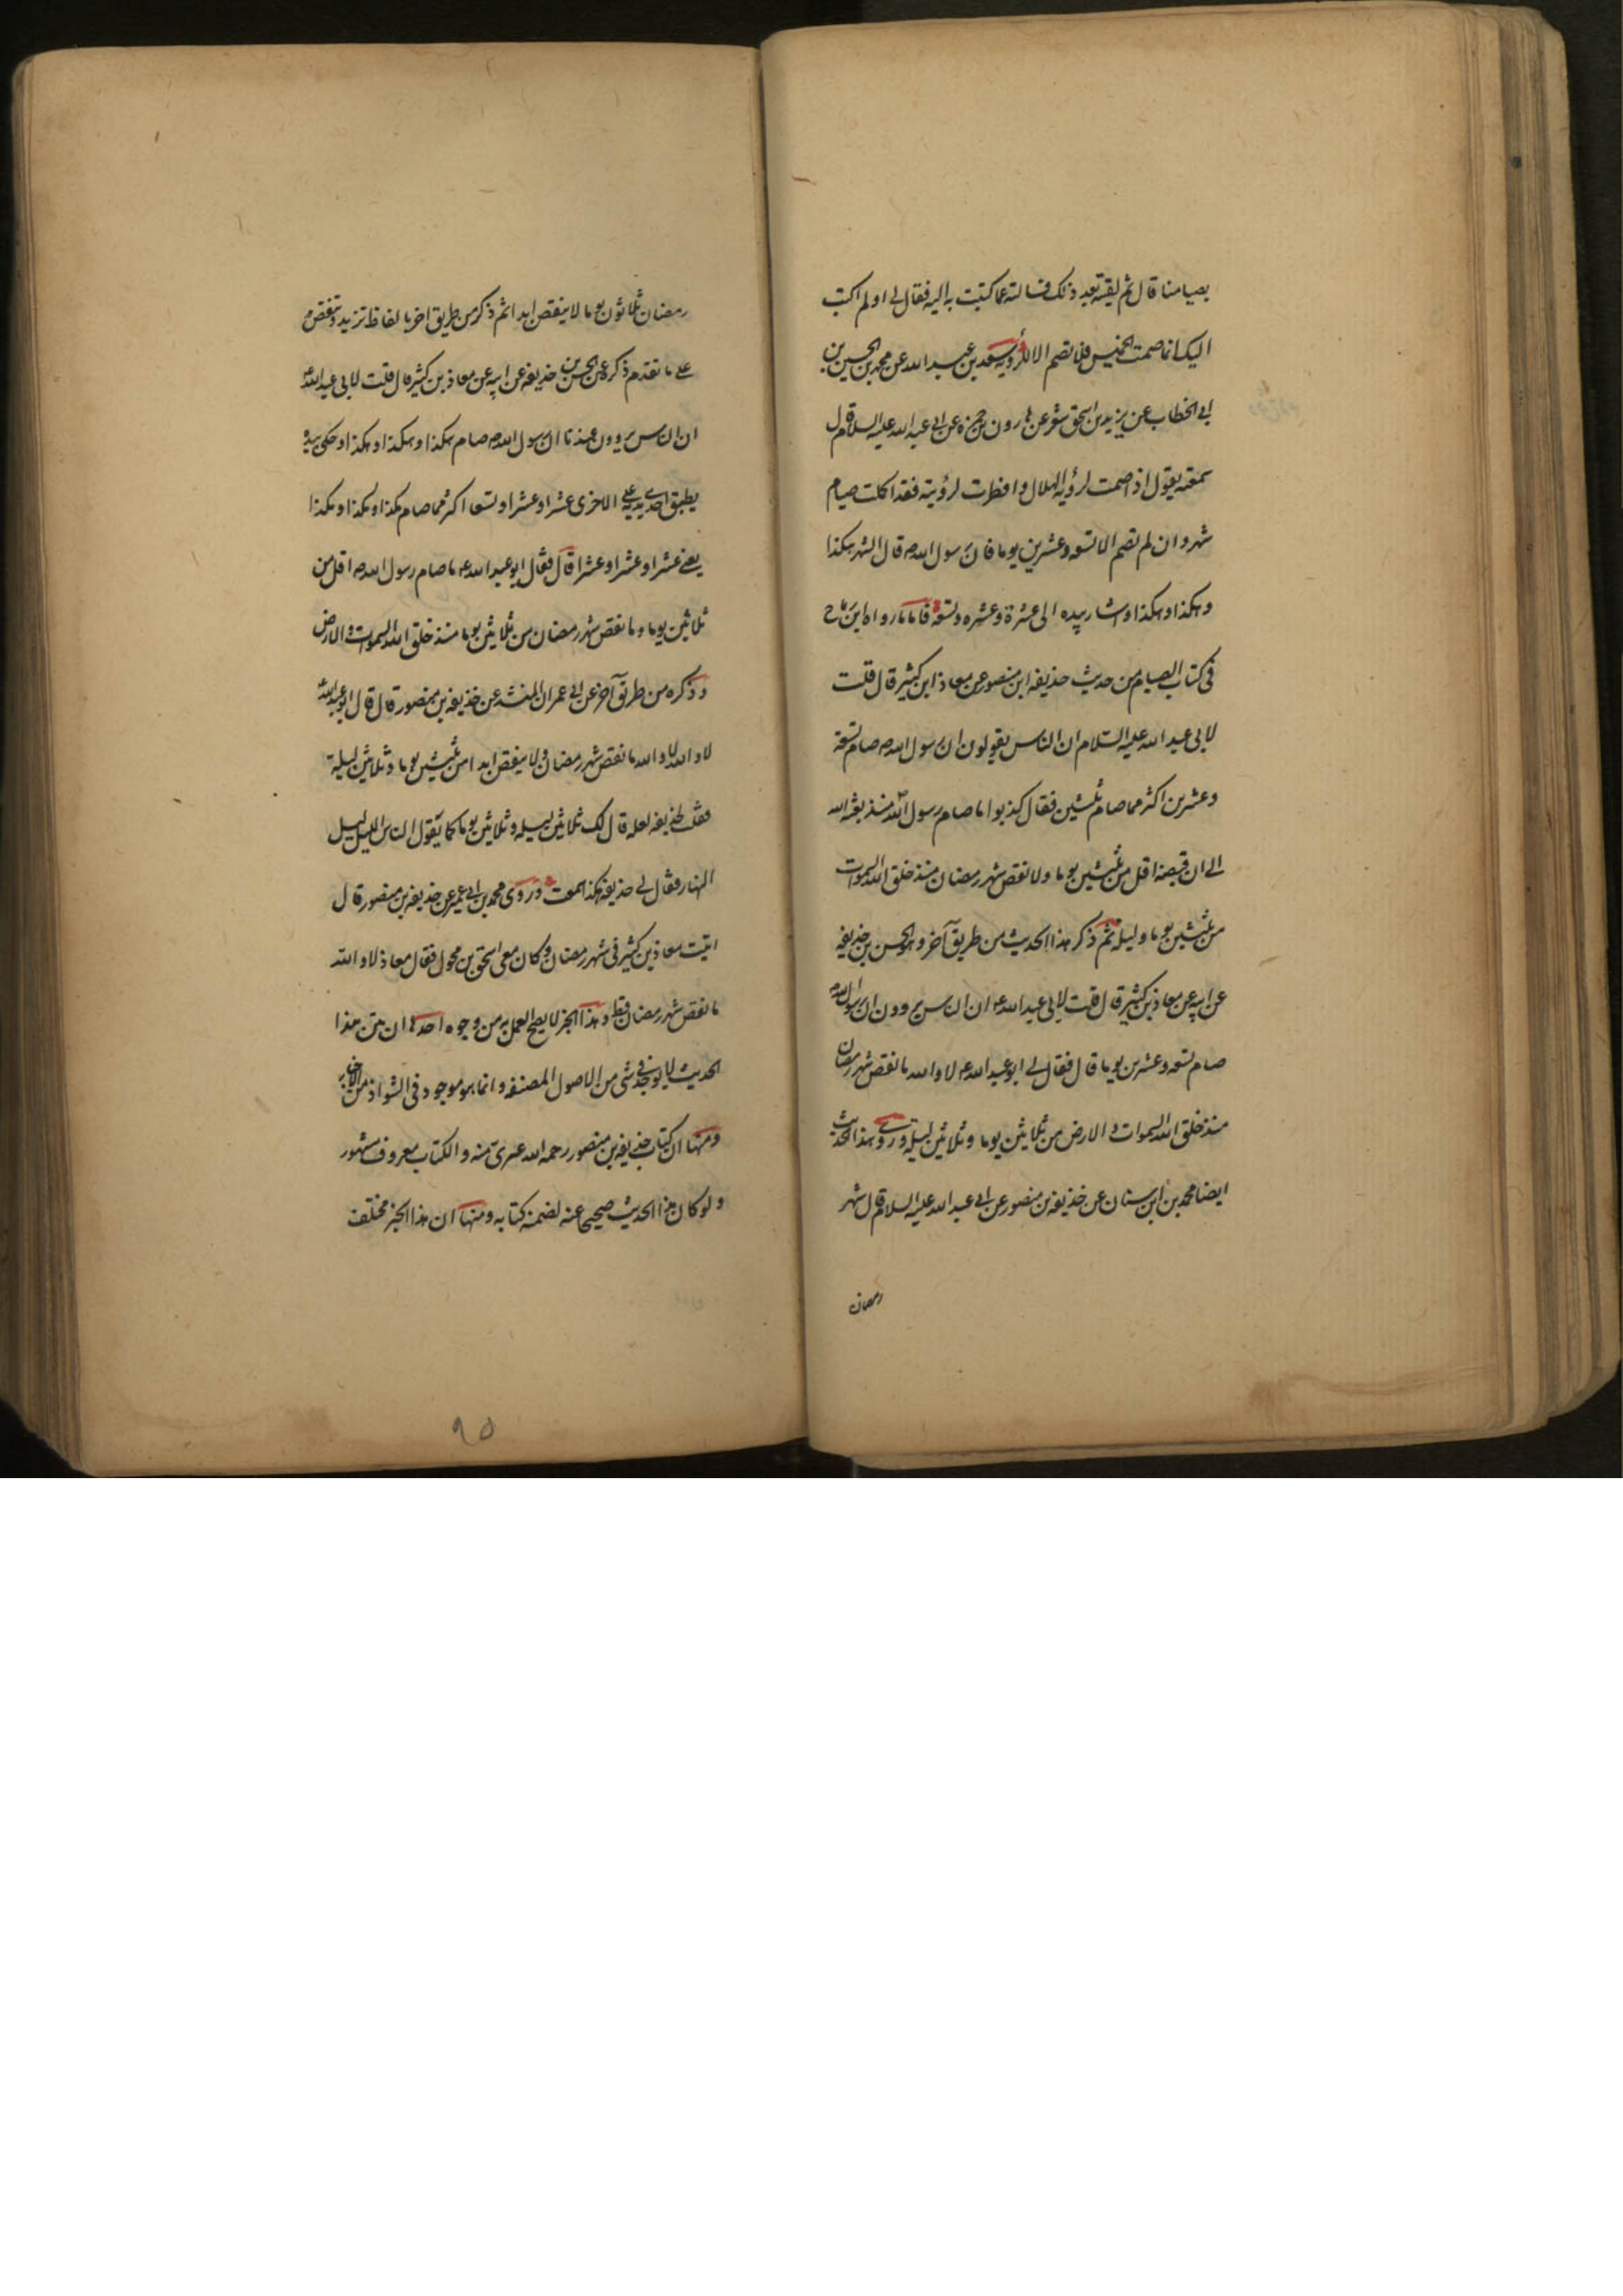 بصيامنا قال ثم لقيته بعد ذلك فسالته عما كتبت به اليه فقال لي او لم اكتب
اليك انما صمت الخميس فلا تصم الا للرؤية سعد بن عبد الله عن محمد بن الحسين بن
ابي الخطاب عن يزيد بن اسحق شعر عن هارون بن حمزة عن ابي عبد الله عليه السلام قال
سمعته يقول اذا صمت لرؤية الهلال وافطرت لرؤيته فقد اكملت صيام
شهر وان لم تصم الا تسعه وعشرين يوما فان رسول الله ص قال الشهر هكذا
وهكذا وهكذا واشار بيده الى عشرة وعشره وتسعة فاما ما رواه ابن رباح
في كتاب الصيام من حديث حذيفه ابن منصور عن معاذ ابن كثير قال قلت
لابي عبد الله عليه السلام ان الناس يقولون ان رسول الله ص صام تسعة
وعشرين اكثر مما صام ثلثين فقال كذبوا ما صام رسول الله منذ بعثه الله
الى ان قبضه اقل من ثلثين يوما ولا نقص شهر رمضان منذ خلق الله السموات
من ثلثين يوما وليلة ثم ذكر هذا الحديث من طريق آخر وهو الحسن بن حذيفه
عن ابيه عن معاذ بن كثير قال قلت لابي عبد الله ع ان الناس يروون ان رسول الله ص
صام تسعه وعشرين يوما قال فقال لي ابو عبد الله ع لا والله ما نقص شهر رمضان
منذ خلق الله السموات والارض من ثلاثين يوما وثلاثين ليلة وروى هذا الحديث
ايضا محمد بن ابن سنان عن حذيفه بن منصور عن ابي عبد الله عليه السلام قال شهر
رمضان
رمضان ثلاثون يوما لا ينقص ابدا ثم ذكر من طريق اخر بالفاظ تزيد وتنقص
على ما تقدم ذكره عن الحسن بن حذيفه عن ابيه عن معاذ بن كثير قال قلت لابي عبد الله ع
ان الناس يروون عندنا ان رسول الله ص صام هكذا وهكذا وهكذا وحكى بيده
يطبق احدى يديه على الاخرى عشرا وعشرا وتسعا اكثر مما صام هكذا وهكذا وهكذا
يعني عشرا وعشرا وعشرا قال فقال ابو عبد الله ع ما صام رسول الله ص اقل من
ثلاثين يوما وما نقص شهر رمضان من ثلاثين يوما منذ خلق الله السموات والارض
وذكره من طريق آخر عن ابي عمران المنشد عن حذيفه بن منصور قال قال ابو عبد الله ع
لا والله لا والله ما نقص شهر رمضان ولا ينقص ابدا من ثلثين يوما وثلاثين ليلة
فقلت لحذيفه لعله قال لك ثلاثين ليله وثلاثين يوما كما يقول الناس الليل ليل
النهار فقال لي حذيفه هكذا سمعت وروى محمد بن ابي عمير عن حذيفه بن منصور قال
اتيت معاذ بن كثير في شهر رمضان وكان معي اسحق بن محول فقال معاذ لا والله
ما نقص شهر رمضان قط وهذا الخبر لا يصح العمل به من وجوه احدها ان متن هذا
الحديث لا يوجد في شي من الاصول المصنفه وانما هو موجود في الشواذ من الاخبار
ومنها ان كتاب حذيفه بن منصور رحمه الله عرى منه والكتاب معروف مشهور
ولو كان هذا الحديث صحيحا عنه لضمنه كتابه ومنها ان هذا الخبر مختلف
٩٥